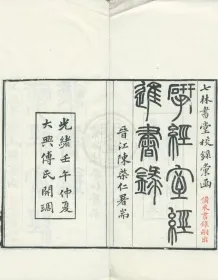 七林書堂校錄彙函
揅經室經
進書錄
晉江陳棨仁署耑
光緒壬午仲夏
大興傅氏開雕